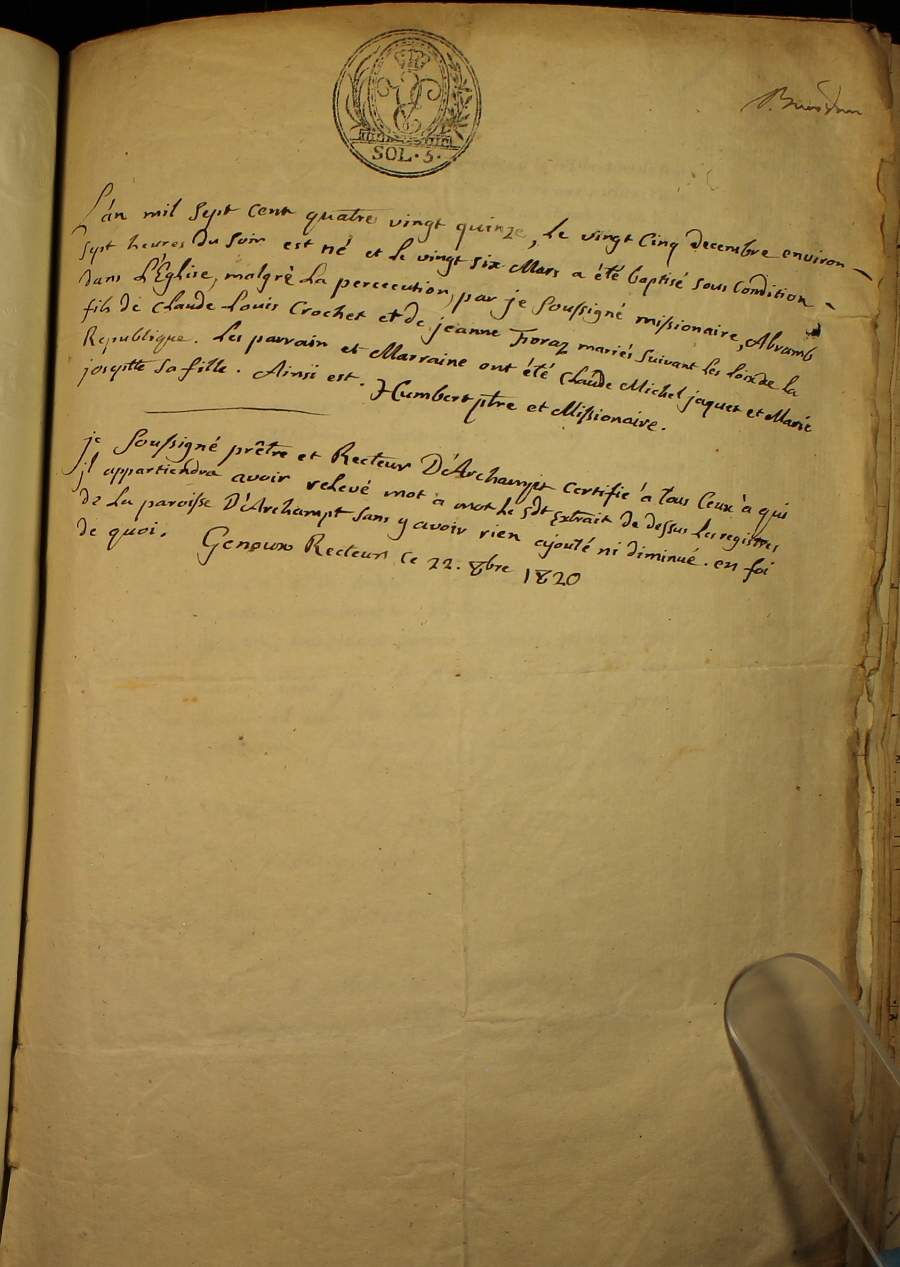 SOL. 5.
L'an mil Sept Cent quatre vingt quinze, le vingt Cinq decembre environ
Sept heures du Soir est né et le vingt Six Mars a été baptisé sous Condition
dans L'Eglise, malgrè La percecution, par je Soussigné missionaire, Abramb
fils de Claude Louis Crochet et de jeanne Fioraz mariés Suivant les loix de la
Republique. Les parrain et Marraine ont été Claude Michel jaquet et Marie
josephte Sa fille. Ainsi est. Humbert ptre et Missionaire.
je Soussigné prêtre et Recteur D'Archampt Certifie à tous Ceux à qui
il appartiendra avoir relevé mot à mot le sdt Extrait de dessus les registres
de la paroisse D'Archampt Sans y avoir rien ajouté ni diminué. en foi
de quoi. Genoux Recteur Ce 22. 8bre 1820